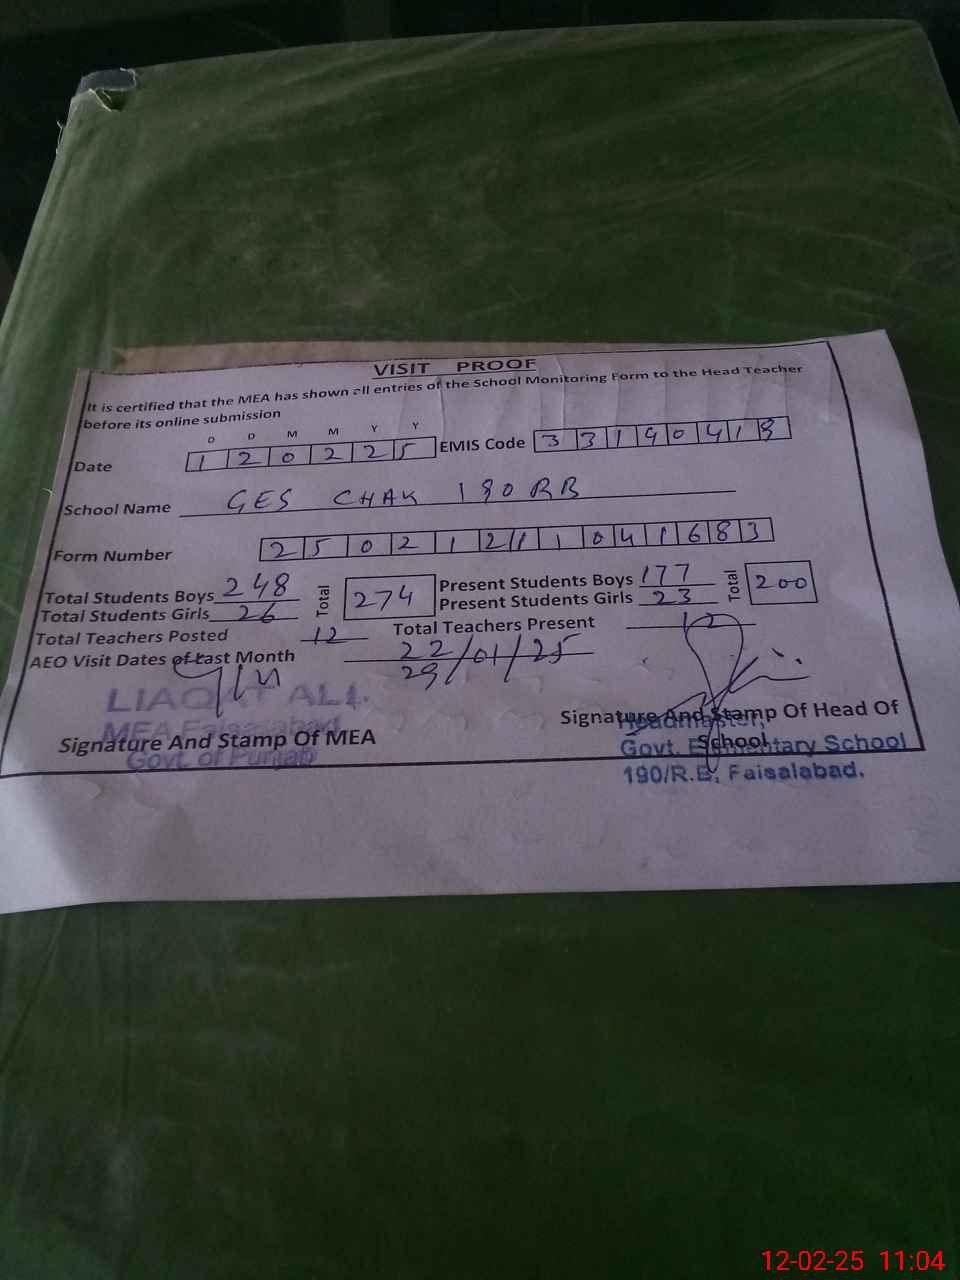 VISIT PROOF
It is certified that the MEA has shown all entries of the School Monitoring Form to the Head Teacher
before its online submission
D D M M Y Y
Date 1 2 0 2 2 5 EMIS Code 3 3 1 9 0 4 1 8
School Name GES CHAK 190 RB
Form Number 2 5 0 2 1 2 1 1 0 4 1 6 8 3
Total Students Boys 248 Total 274 Present Students Boys 177 Total 200
Total Students Girls 26 Present Students Girls 23
Total Teachers Posted 12 Total Teachers Present 12
AEO Visit Dates of Last Month 22/01/25
29
LIAQAT ALI.
MEA Faisalabad
Govt. of Punjab
Signature And Stamp Of MEA
Signature And Stamp Of Head Of
School
Headmaster,
Govt. Elementary School
190/R.B, Faisalabad.
12-02-25 11:04